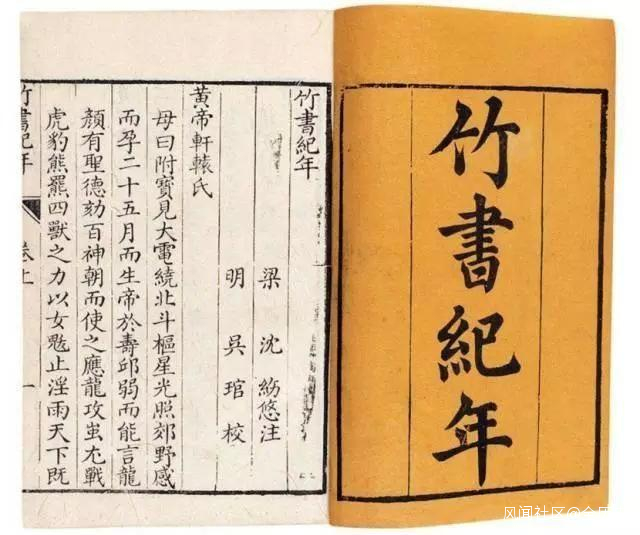 竹書紀年
竹書紀年
梁 沈約悠注
明 吳琯校
黃帝軒轅氏
母曰附寶見大電繞北斗樞星光照郊野感
而孕二十五月而生帝於壽邱弱而能言龍
顏有聖德劾百神朝而使之應龍攻蚩尤戰
虎豹熊羆四獸之力以女魃止淫雨天下既
竹書紀年 卷上 一
風聞社區@